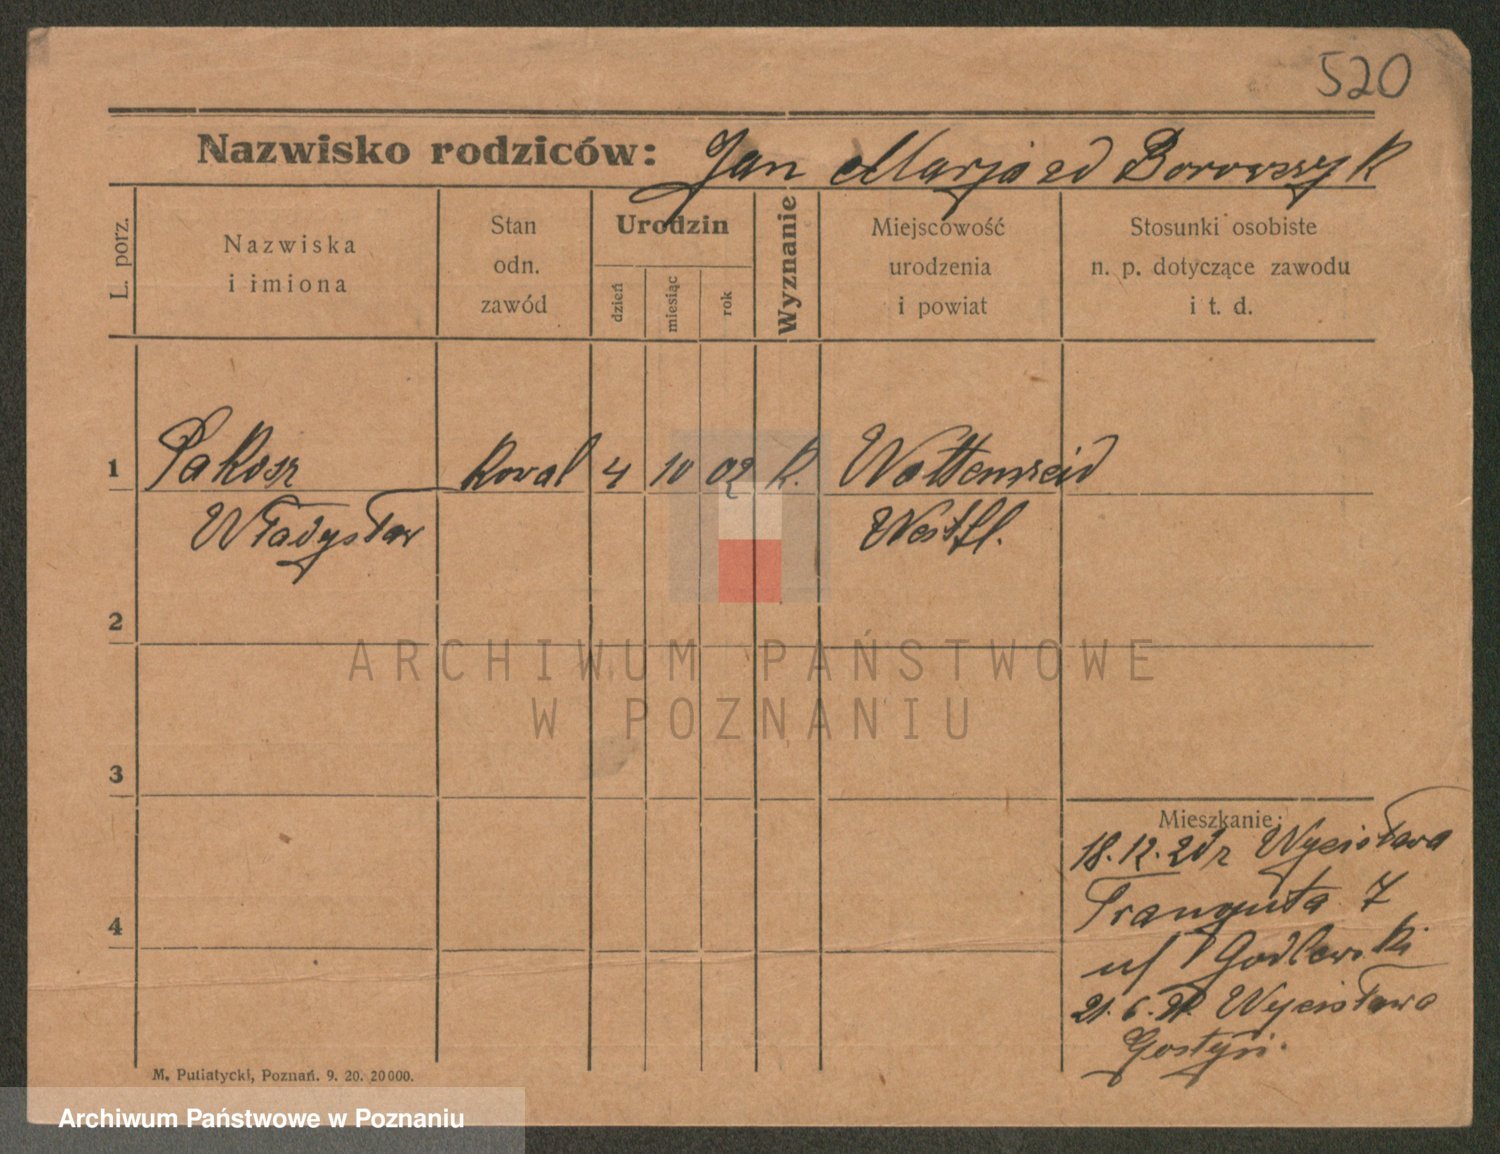 520
Nazwisko rodziców: Jan Marja zd Borowszyk
L. porz.
Nazwiska
i imiona
Stan
odn.
zawód
Urodzin
dzień
miesiąc
rok
Wyznanie
Miejscowość
urodzenia
i powiat
Stosunki osobiste
n. p. dotyczące zawodu
i t. d.
1 Pakosz kowal 4 10 02 k. Wattenscheid
Władysław Westfl.
2
3
4
Mieszkanie:
18.12. Wycisława
7
u/ Godlewski
21. 6. Wycisława
Gostyń.
M. Putiatycki, Poznań. 9. 20. 20000.
ARCHIWUM PAŃSTWOWE
W POZNANIU
Archiwum Państwowe w Poznaniu